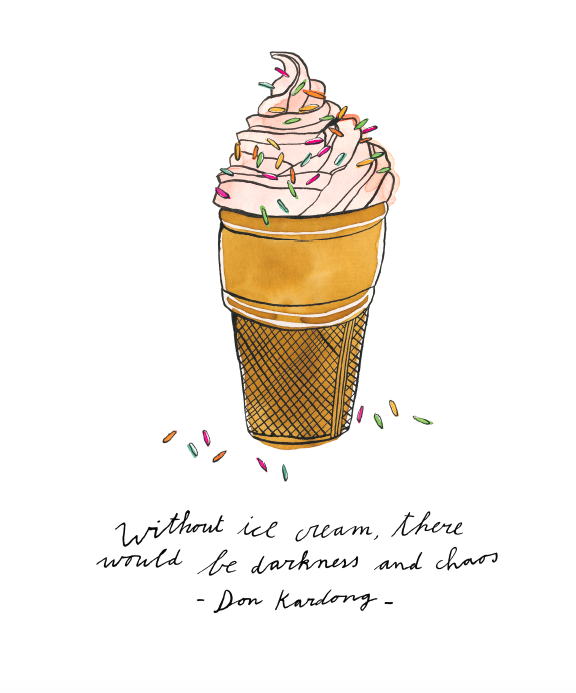 Without ice cream, there
would be darkness and chaos
- Don Kardong -